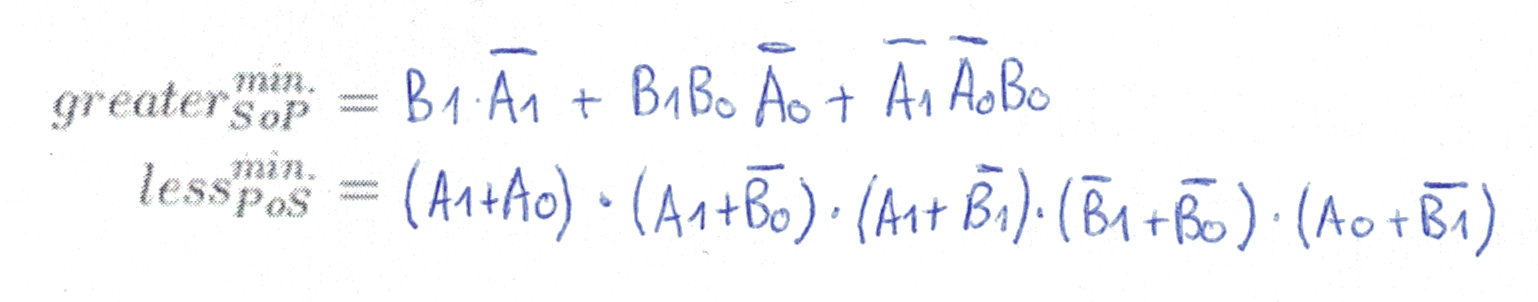 greater_{SoP}^{min.} = B1·\overline{A1} + B1B0 \overline{A0} + \overline{A1} \overline{A0}B0
less_{PoS}^{min.} = (A1+A0) · (A1+\overline{B0}) · (A1+\overline{B1}) · (\overline{B1}+\overline{B0}) · (A0+\overline{B1})